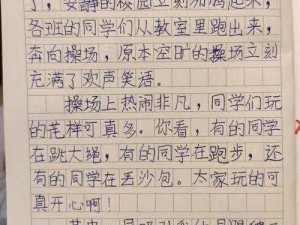 了，安静的校园立刻沸腾起来，
各班的同学们从教室里跑出来，
奔向操场，原本空旷的操场立刻
充满了欢声笑语。
操场上热闹非凡，同学们玩
的花样可真多。你看，有的同学
在跳大绳，有的同学在跑步，还
有的同学在丢沙包。大家玩的可
真开心啊！